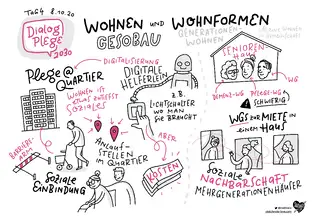 TAG 4 8.10.20
DIALOG
PLEGE
2030
WOHNEN UND WOHNFORMEN
GESOBAU
GENERATIONEN
WOHNEN
PLEGE@
QUARTIER
DIGITALISIERUNG
DIGITALE
HELFERLEIN
Z.B.
LICHTSCHALTER
WO MAN
SIE BRAUCHT
WOHNEN IST
ETWAS ZUTIEFST
SOZIALES
BARRIERE-
ARM
ANLAUF-
STELLEN
IM QUARTIER
ABER
KOSTEN
SOZIALE
EINBINDUNG
SENIOREN
HAUS
WG
DEMENZ-WG PFLEGE-WG
SCHWIERIG
WGS ZUR MIETE IN
EINEM HAUS
SOZIALE
NACHBARSCHAFT
MEHRGENERATIONENHÄUSER